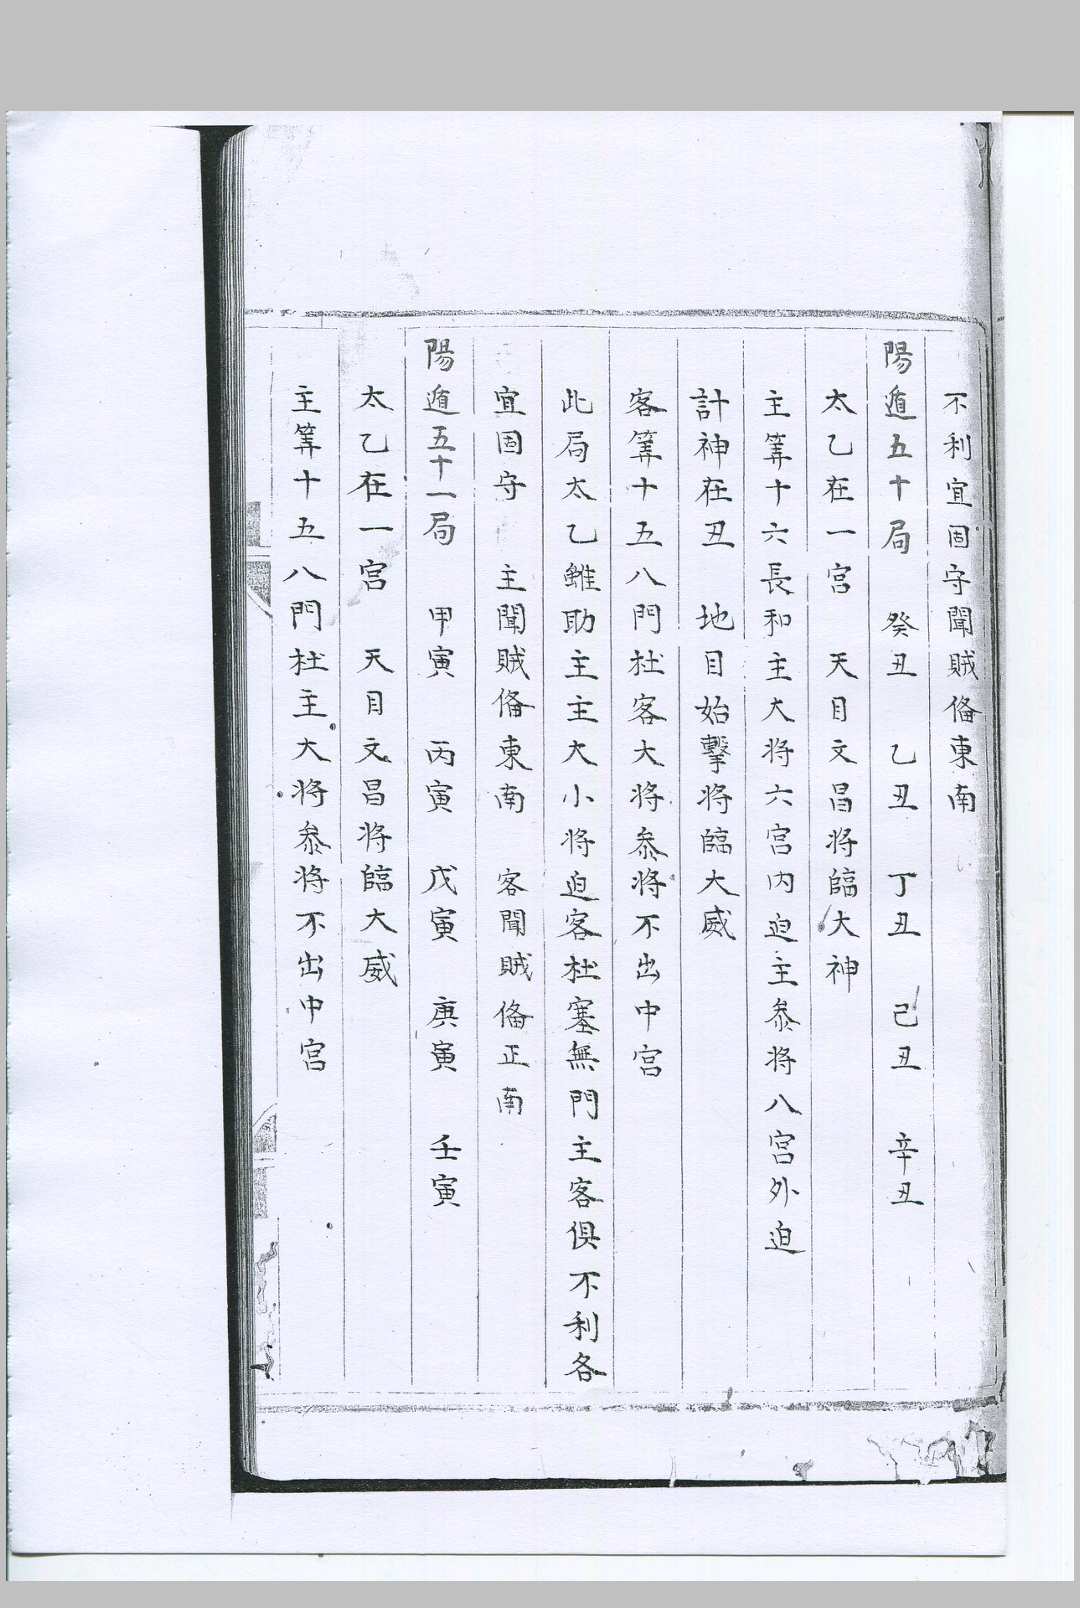 不利宜固守聞賊俻東南
陽遁五十局　癸丑　乙丑　丁丑　己丑　辛丑
太乙在一宮　天目文昌将臨大神
主筭十六長和主大将六宮内迫主叅将八宮外迫
計神在丑　地目始擊将臨大威
客筭十五八門杜客大将叅将不出中宮
此局太乙雖助主主大小将迫客杜塞無門主客俱不利各
宜固守　主聞賊俻東南　客聞賊俻正南
陽遁五十一局　甲寅　丙寅　戊寅　庚寅　壬寅
太乙在一宮　天目文昌将臨大威
主筭十五八門杜主大将叅将不出中宮